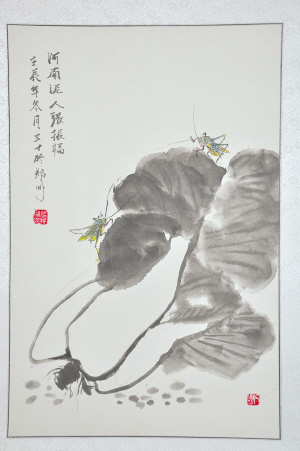 河南泥人張振福
壬辰年冬月三十於鄭州